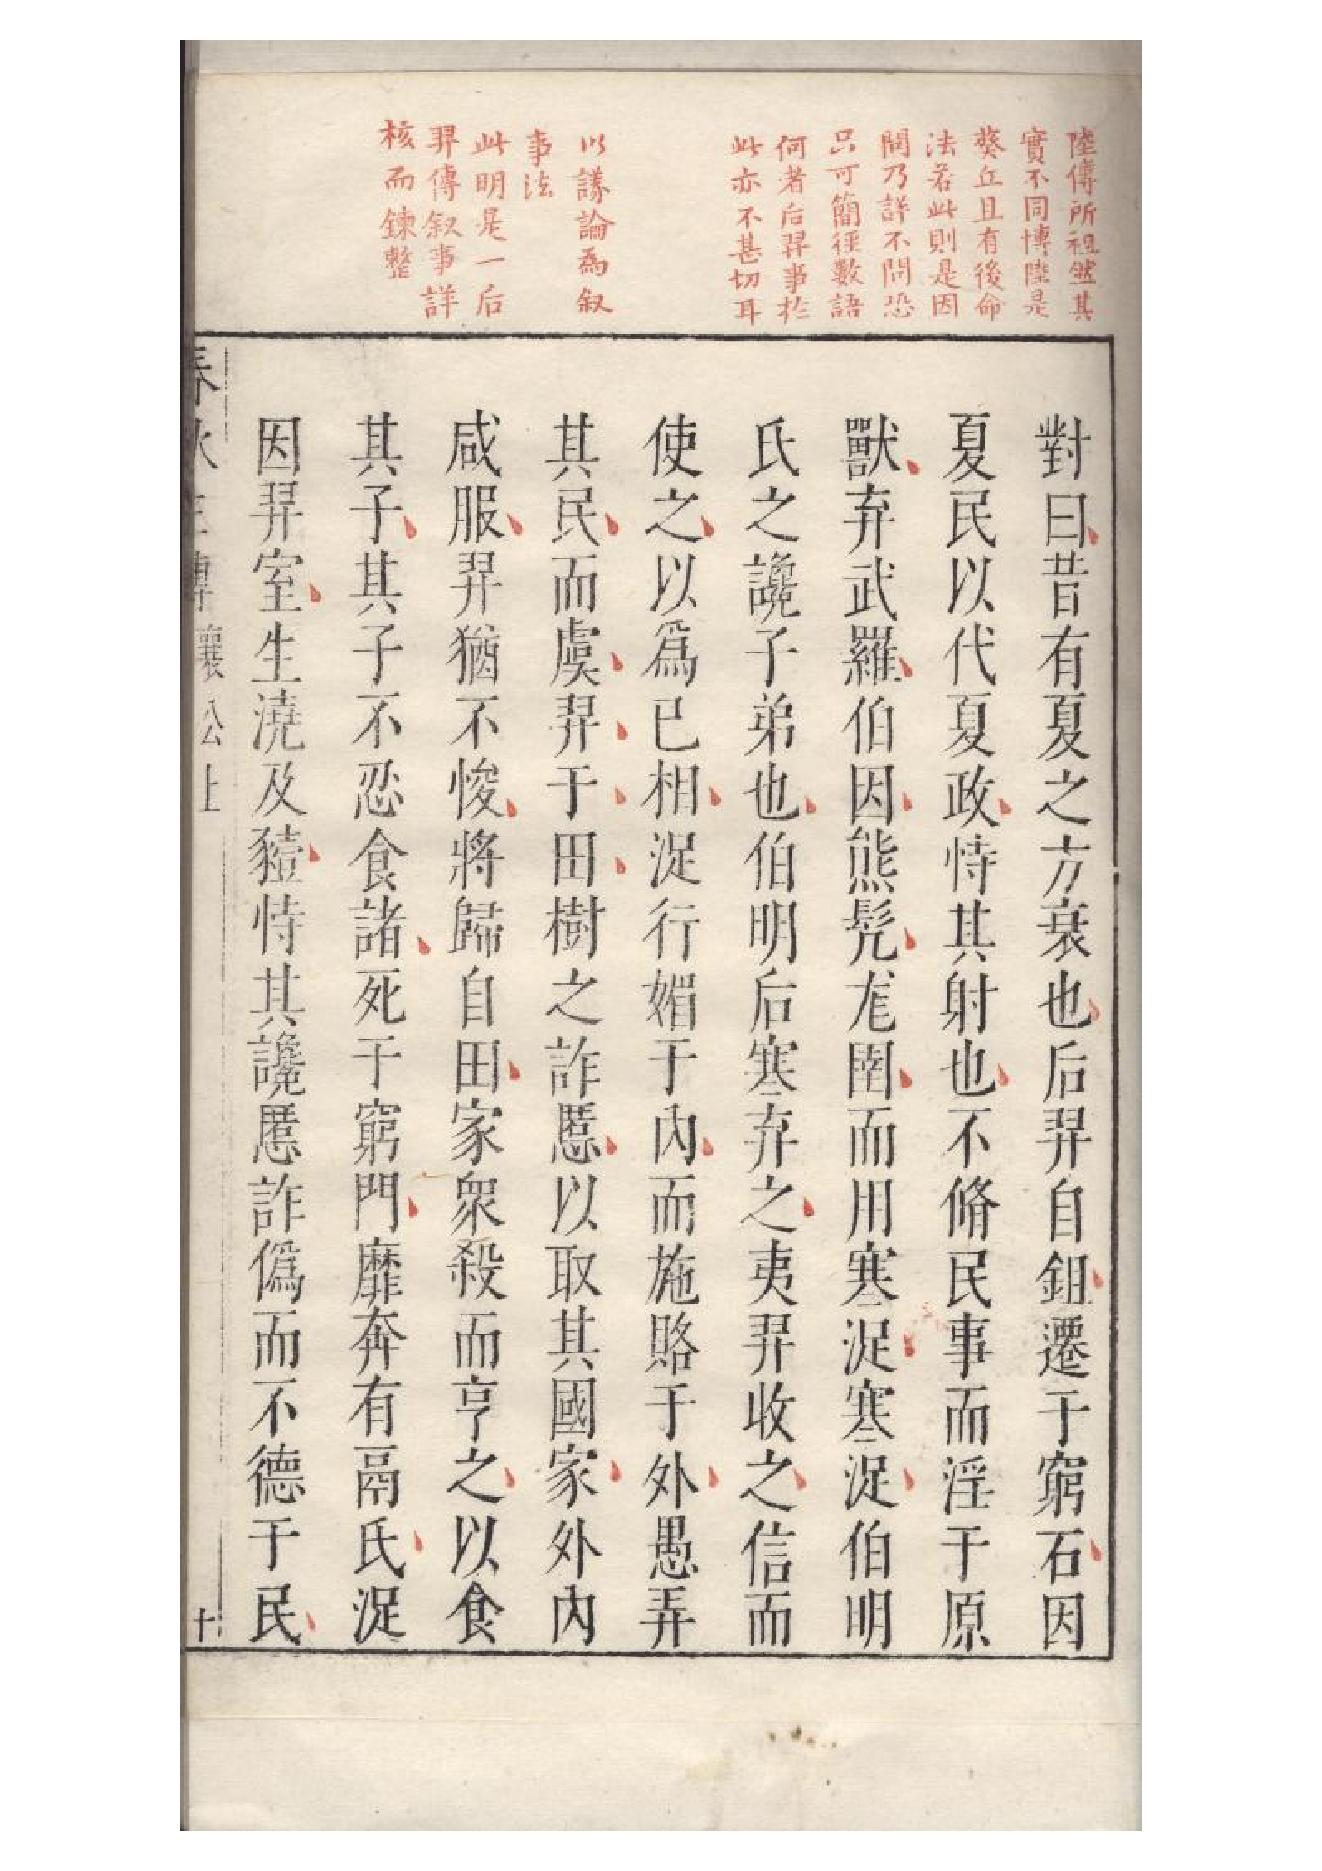 陸傳所祖然其
實不同博陸是
葵丘且有後命
法若此則是因
問乃詳不問恐
只可簡徑數語
何者后羿事於
此亦不甚切耳
以議論為叙
事法
此明是一后
羿傳叙事詳
核而鍊整
對曰昔有夏之方衰也后羿自鉏遷于窮石因
夏民以代夏政恃其射也不脩民事而淫于原
獸弃武羅伯因熊髡尨圉而用寒浞寒浞伯明
氏之讒子弟也伯明后寒弃之夷羿收之信而
使之以爲已相浞行媚于內而施賂于外愚弄
其民而虞羿于田樹之詐慝以取其國家外內
咸服羿猶不悛將歸自田家衆殺而亨之以食
其子其子不忍食諸死于窮門靡奔有鬲氏浞
因羿室生澆及豷恃其讒慝詐僞而不德于民
春秋左傳 襄公上 十